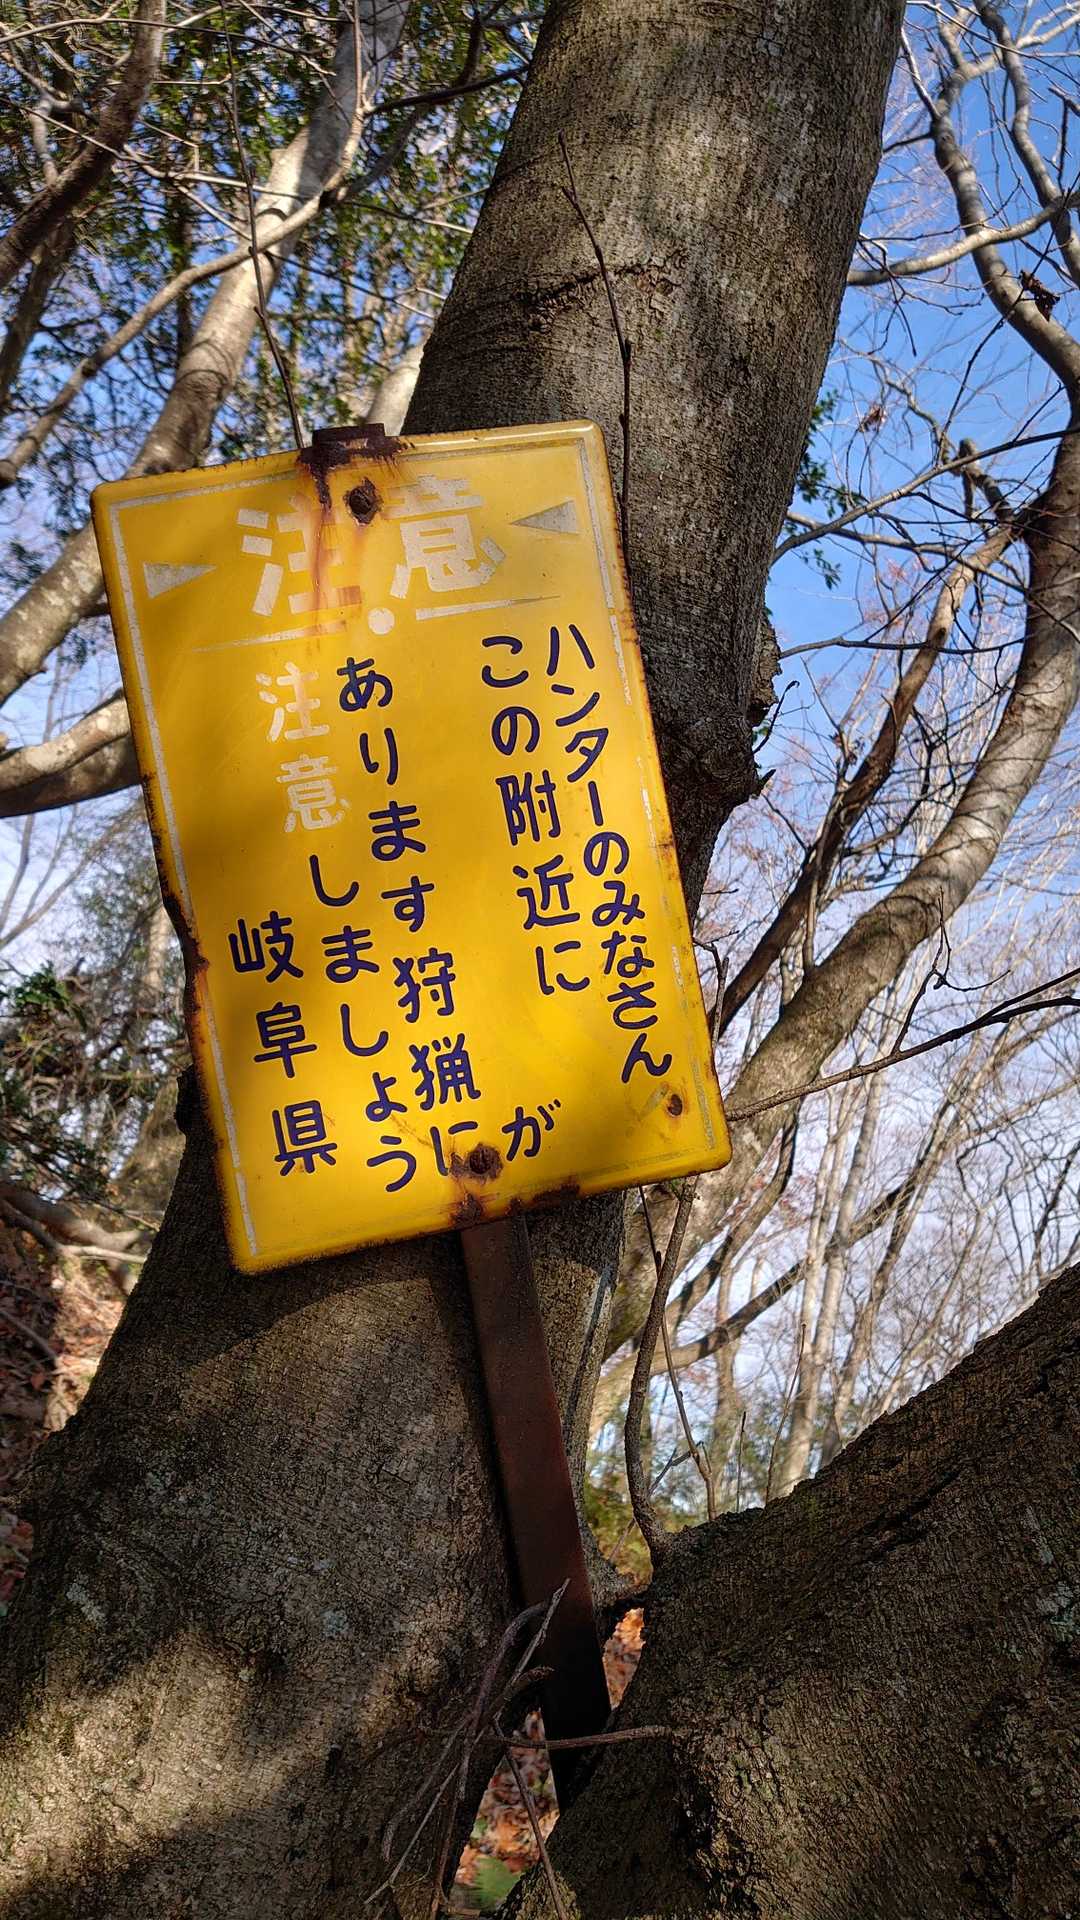 注意
ハンターのみなさん
この附近に が
あります狩猟に
注意しましょう
岐阜県